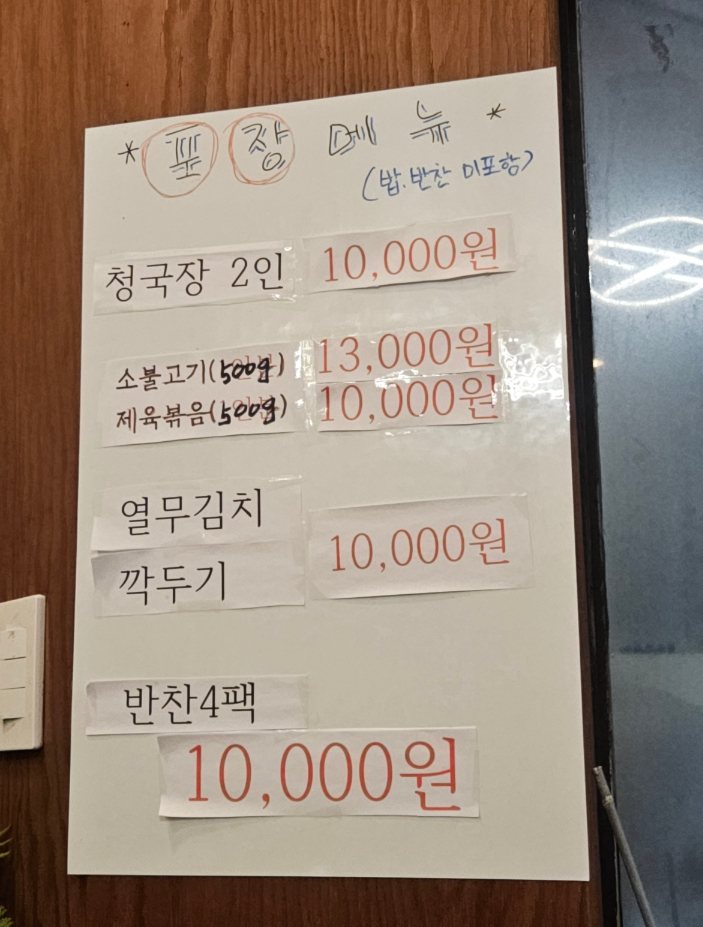 * 포장 메뉴 *
(밥.반찬 미포함)
청국장 2인 10,000원
소불고기(500g) 13,000원
제육볶음(500g) 10,000원
열무김치
깍두기
10,000원
반찬4팩
10,000원